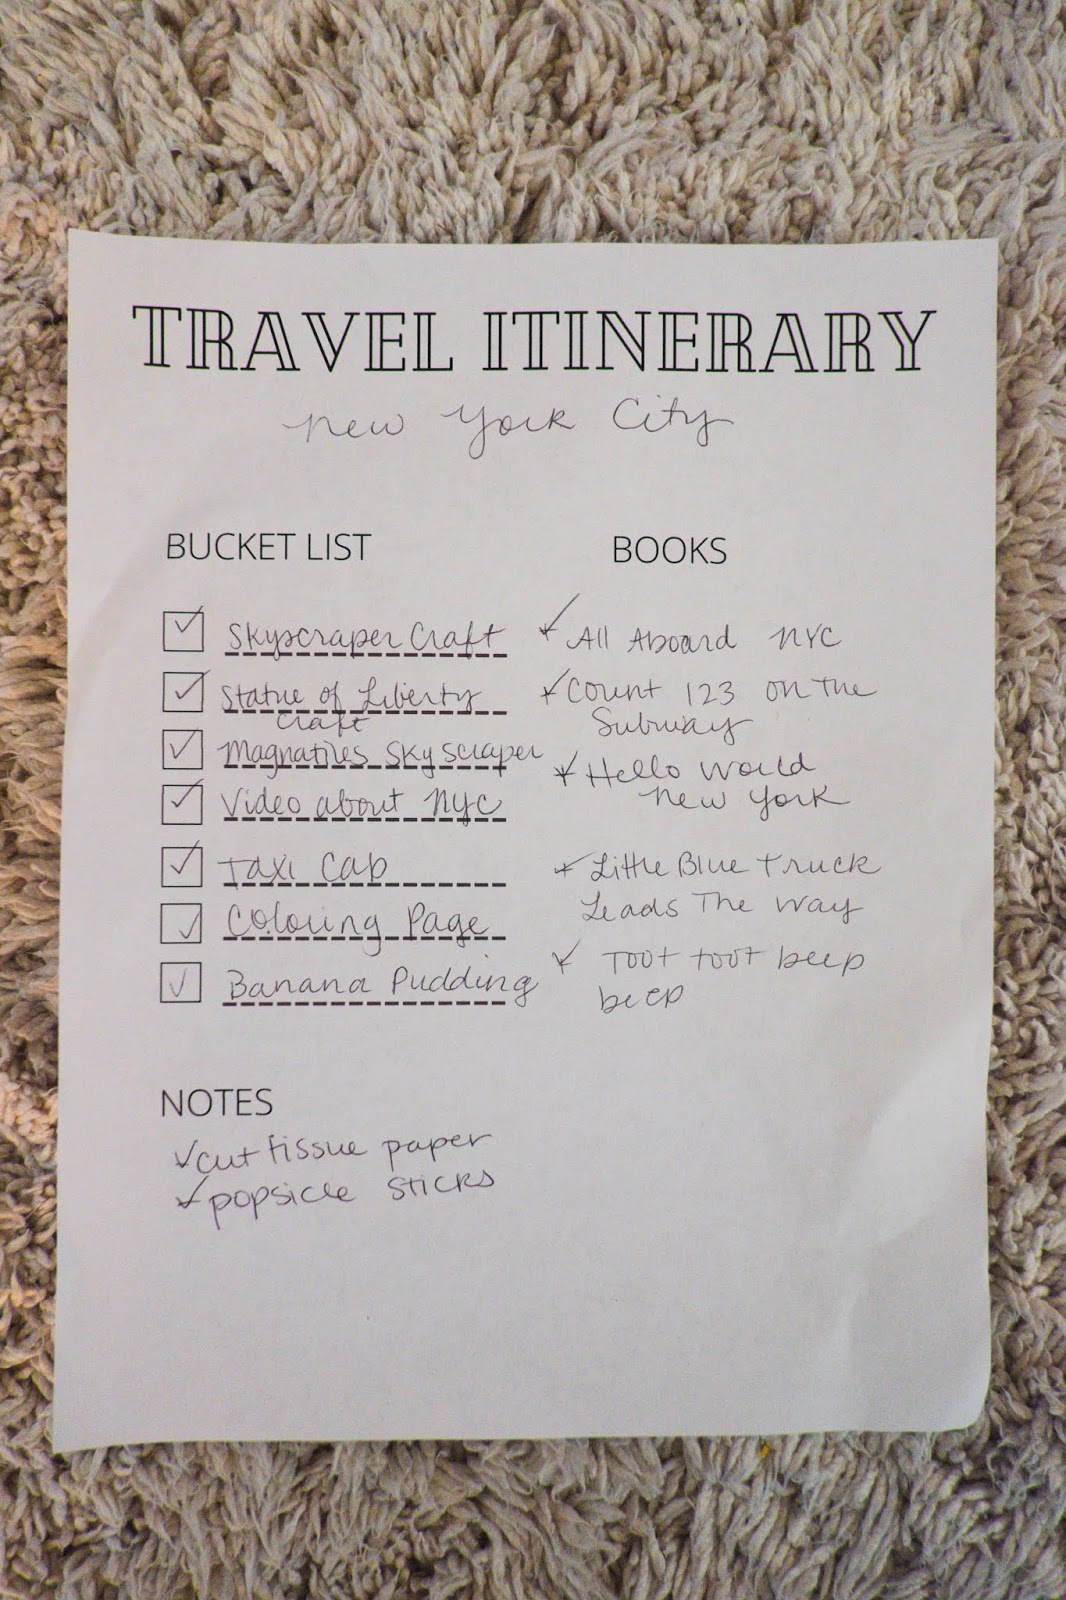 TRAVEL ITINERARY
New York City
BUCKET LIST
Skyscraper Craft
Statue of Liberty
Craft
Magnatiles Skyscraper
Video about NYC
Taxi Cab
Coloring Page
Banana Pudding
BOOKS
All Aboard NYC
Count 123 on the
Subway
Hello World
New York
Little Blue Truck
Leads The Way
Toot toot beep
beep
NOTES
cut tissue paper
popsicle sticks